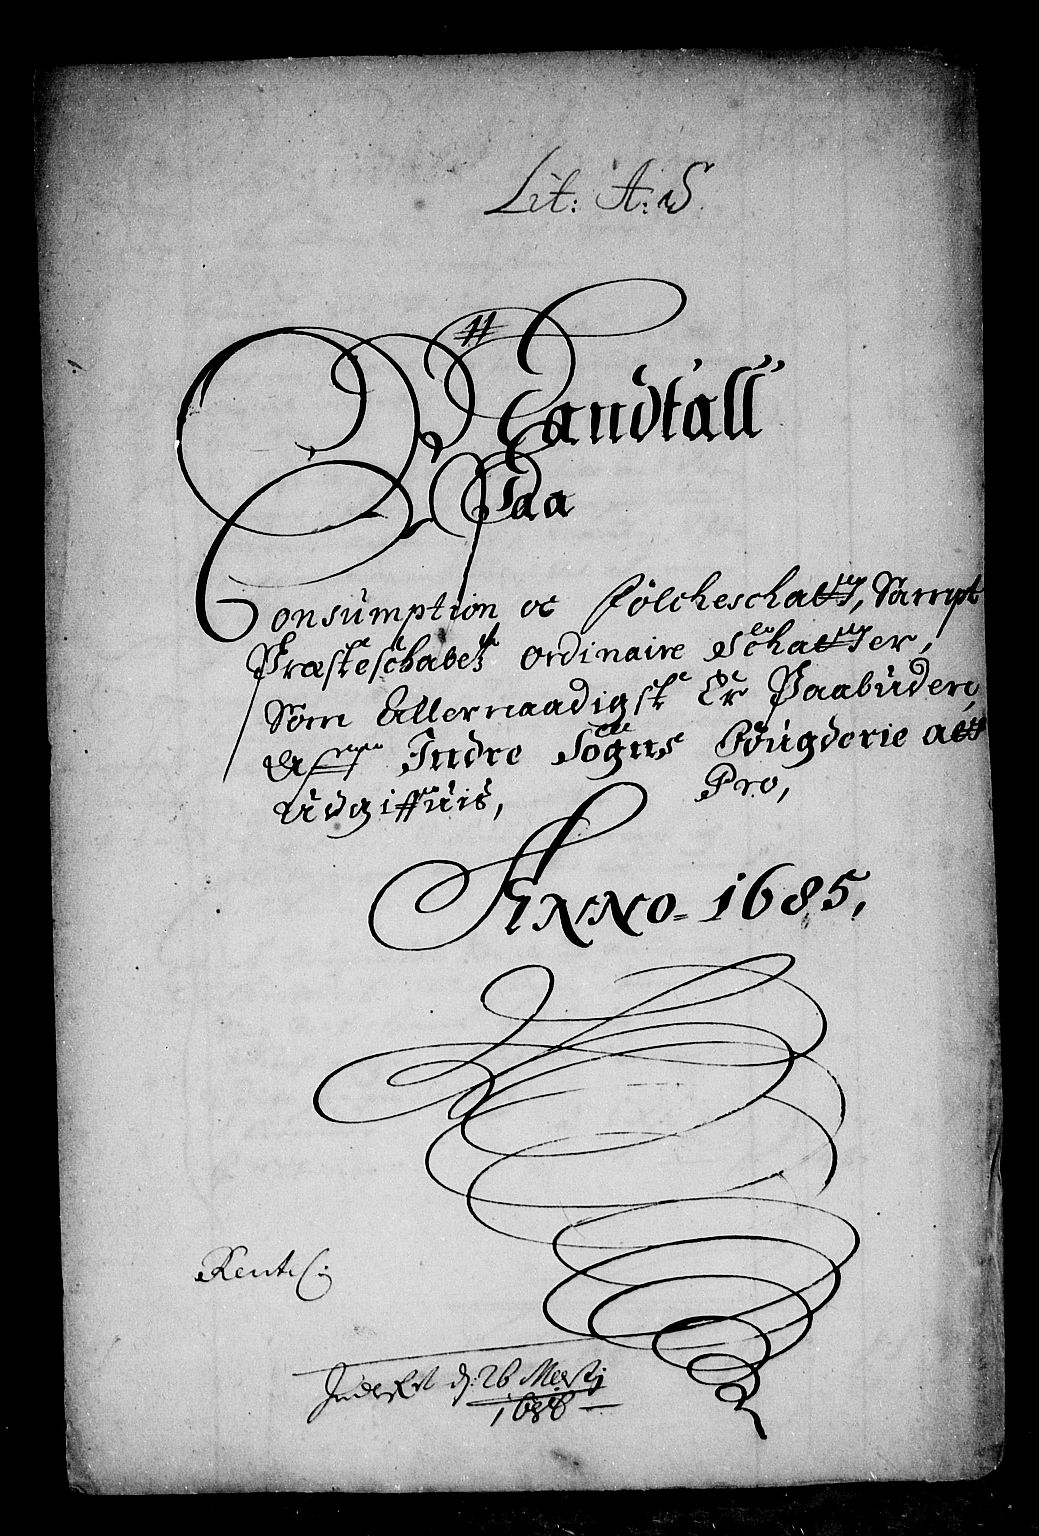 Lit: A: S.
Mandtall
Paa
Consumption oc Folcheschatt, Sampt
Præsteschabetz ordinaire Schatter,
Som Allernaadigst Er Paabuden,
Indre Sogns Fougderie att
Udgiffuis, Pro,
ANNO. 1685,
Rente C:
Indlefert d: 26 Martj
1688